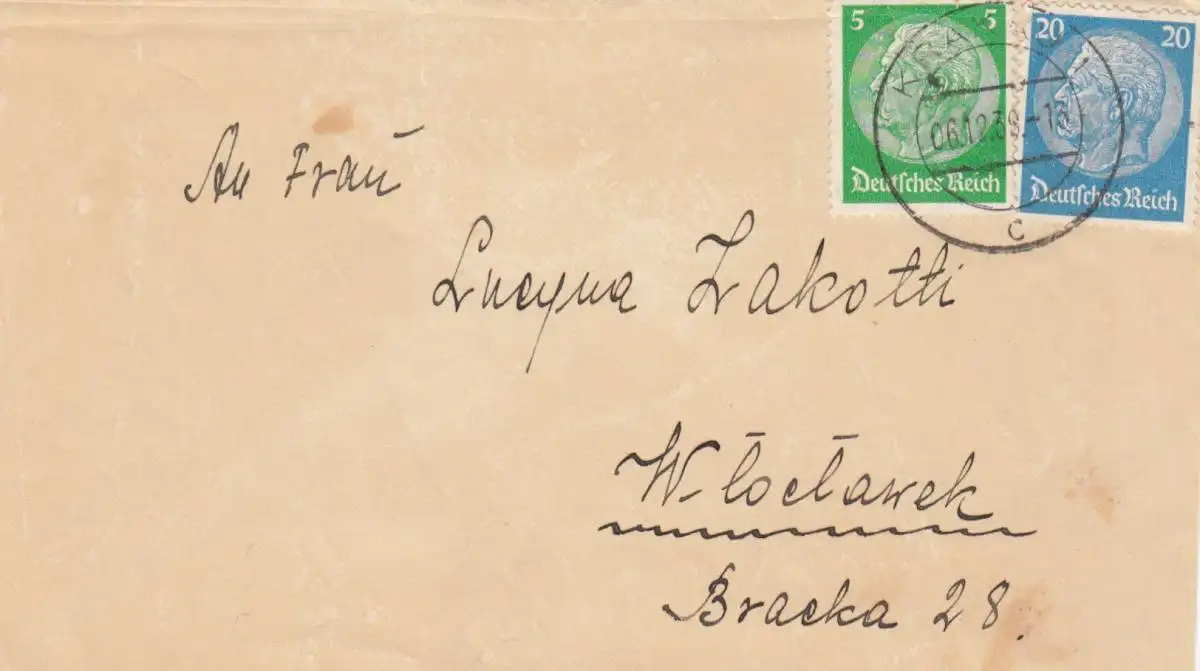 5 5
Deutsches Reich
20 20
Deutsches Reich
06.12.39.-1
C
An Frau
Lucyna Zakotti
Włocławek
Bracka 28.